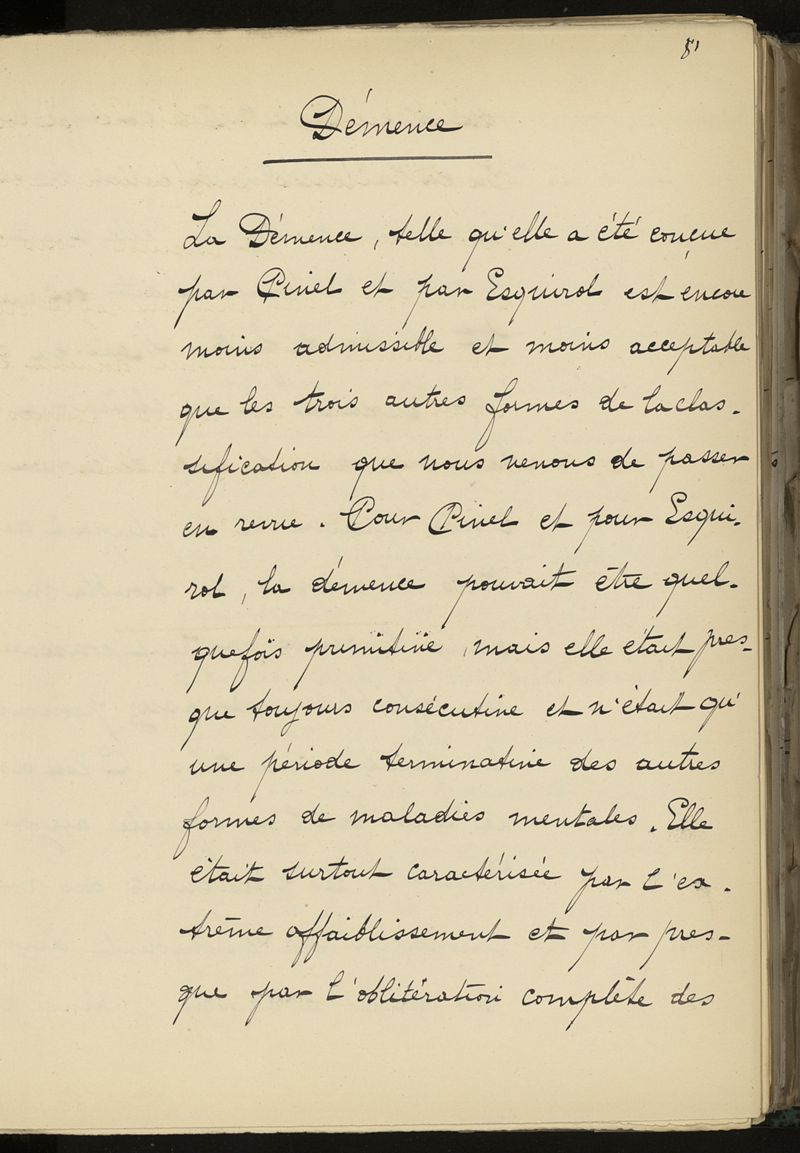 81
Démence
La Démence, telle qu'elle a été conçue
par Pinel et par Esquirol est encore
moins admissible et moins acceptable
que les trois autres formes de la clas-
sification que nous venons de passer
en revue. Pour Pinel et pour Esqui-
rol, la démence pouvait être quel-
quefois primitive, mais elle était pres-
que toujours consécutive et n'était qu'
une période terminative des autres
formes de maladies mentales. Elle
était surtout caractérisée par l'ex-
trême affaiblissement et par pres-
que par l'oblitération complète des